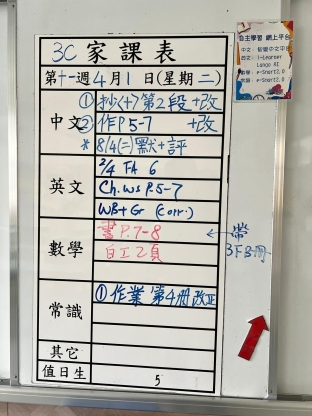 3C 家課表
第十一週 4月1日(星期二)
中文
① 抄<十>第2段 +改
② 作P.5-7 +改
* 8/4(二)默+評
英文
2/4 FA 6
Ch. WS P.5-7
WB+G (Corr.)
數學
書P.7-8
白工2頁
← 帶
3下B冊
常識
① 作業 第4冊改正
其它
值日生 5
自主學習 網上平台
中文:
英文: i-Learner
Lango AI
數學: e-Smart2.0
常識: e-Smart2.0